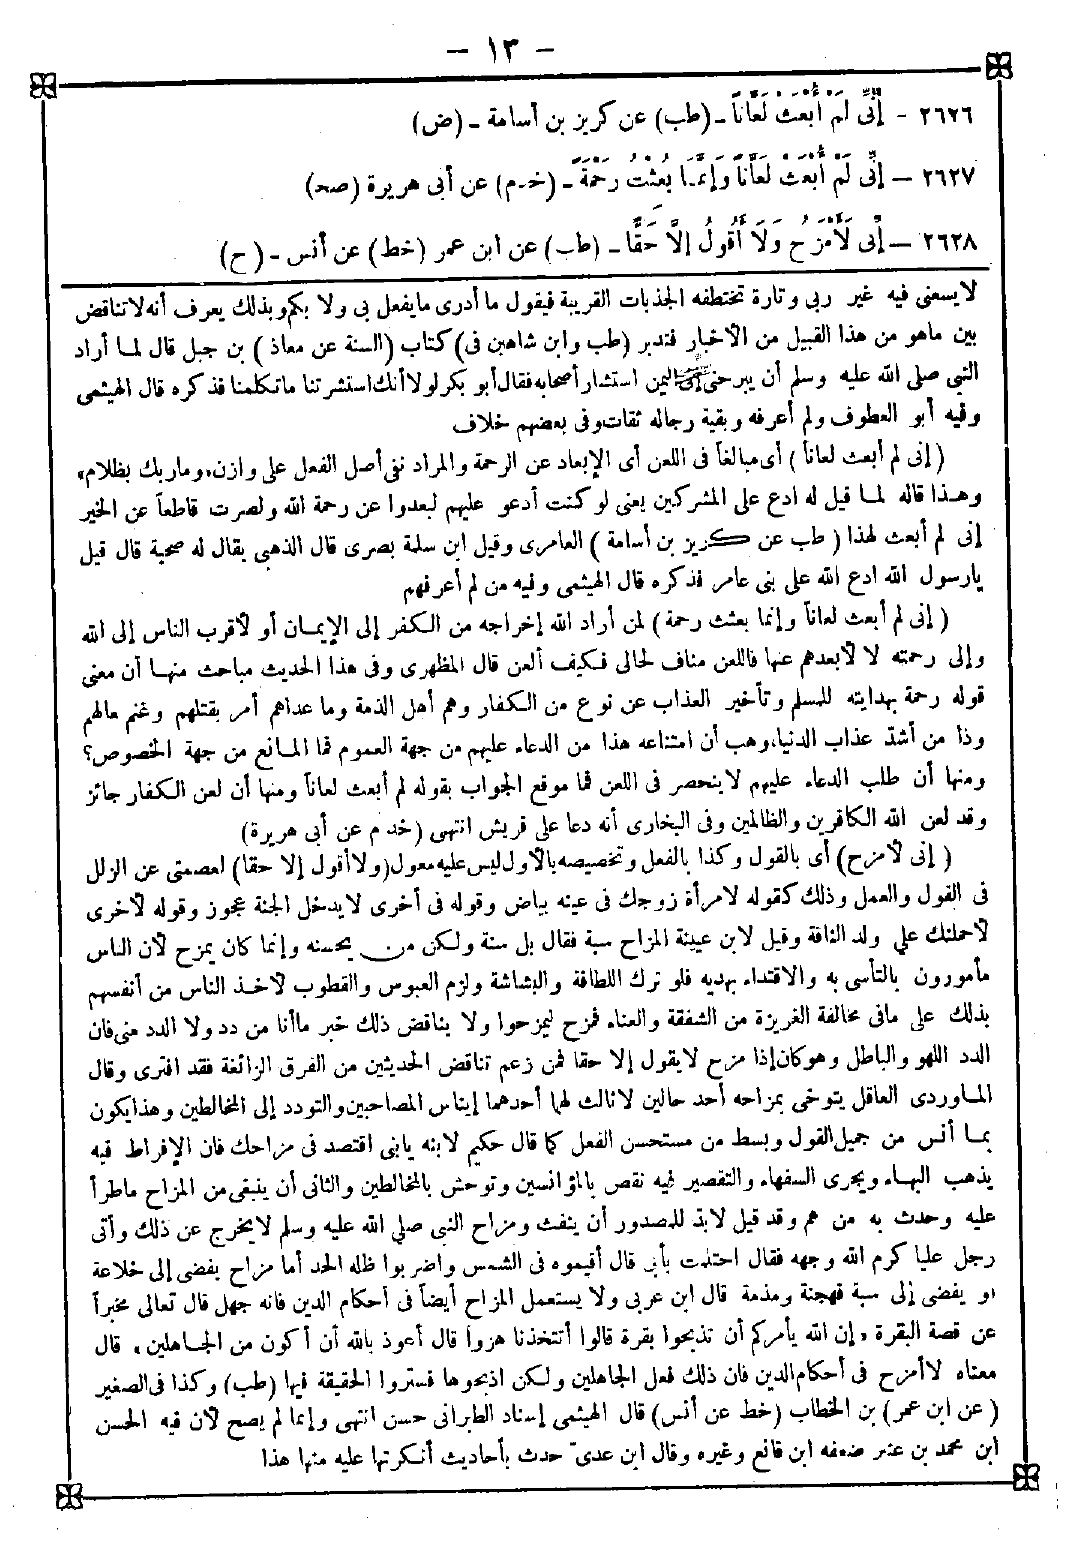 - ١٣ -
٢٦٢٦ - إِنِّى لَمْ أُبْعَثْ لَعَّاناً - (طب) عن كريز بن أسامة - (ض)
٢٦٢٧ - إِنِّى لَمْ أُبْعَثْ لَعَّاناً وَإِنَّمَا بُعِثْتُ رَحْمَةً - (خدم) عن أبى هريرة (صح)
٢٦٢٨ - إِنِّى لَأَمْزَحُ وَلَا أَقُولُ إِلَّا حَقًّا - (طب) عن ابن عمر (خط) عن أنس - (ح)
لا يسعنى فيه غير ربى وتارة تختطفه الجذبات القريبة فيقول ما أدرى ما يفعل بى ولا بكم وبذلك يعرف أنه لا تناقض
بين ماهو من هذا القبيل من الأخبار فتدبر (طب وابن شاهين فى) كتاب (السنة عن معاذ) بن جبل قال لما أراد
النبى صلى الله عليه وسلم أن يبرحنى إلى اليمن استشار أصحابه فقال أبو بكر لولا أنك استشرتنا ما تكلمنا فذكره قال الهيثمى
وفيه أبو العطوف ولم أعرفه وبقية رجاله ثقات وفى بعضهم خلاف
(إنى لم أبعث لعاناً) أى مبالغاً فى اللعن أى الإبعاد عن الرحمة والمراد نفى أصل الفعل على وازن «وما ربك بظلام»
وهذا قاله لما قيل له ادع على المشركين يعنى لو كنت أدعو عليهم لبعدوا عن رحمة الله ولصرت قاطعاً عن الخير
إنى لم أبعث لهذا (طب عن كريز بن أسامة) العامرى وقيل ابن سلمة بصرى قال الذهبى يقال له صحبة قال قيل
يارسول الله ادع الله على بنى عامر فذكره قال الهيثمى وفيه من لم أعرفهم
(إنى لم أبعث لعاناً وإنما بعثت رحمة) لمن أراد الله إخراجه من الكفر إلى الإيمان أو لأقرب الناس إلى الله
وإلى رحمته لا لأبعدهم عنها فاللعن مناف لحالى فكيف ألعن قال المظهرى وفى هذا الحديث مباحث منها أن معنى
قوله رحمة بهدايته للمسلم وتأخير العذاب عن نوع من الكفار وهم أهل الذمة وما عداهم أمر بقتلهم وغنم مالهم
وذا من أشد عذاب الدنيا، وهب أن امتناعه هذا من الدعاء عليهم من جهة العموم فما المانع من جهة الخصوص؟
ومنها أن طلب الدعاء عليهم لا ينحصر فى اللعن فما موقع الجواب بقوله لم أبعث لعاناً ومنها أن لعن الكفار جائز
وقد لعن الله الكافرين والظالمين وفى البخارى أنه دعا على قريش انتهى (خدم عن أبى هريرة)
(إنى لأمزح) أى بالقول وكذا بالفعل وتخصيصه بالأول ليس عليه معول (ولا أقول إلا حقا) لعصمتى عن الزلل
فى القول والعمل وذلك كقوله لامرأة زوجك فى عينه بياض وقوله فى أخرى لا يدخل الجنة عجوز وقوله لأخرى
لأحملنك على ولد الناقة وقيل لابن عيينة المزاح سبة فقال بل سنة ولكن من يحسنه وإنما كان يمزح لأن الناس
مأمورون بالتأسى به والاقتداء بهديه فلو ترك اللطافة والبشاشة ولزم العبوس والقطوب لأخذ الناس من أنفسهم
بذلك على مافى مخالفة الغريزة من الشفقة والعناء فمزح ليمزحوا ولا يناقض ذلك خبر ما أنا من دد ولا الدد منى فان
الدد اللهو والباطل وهو كان إذا مزح لا يقول إلا حقا فمن زعم تناقض الحديثين من الفرق الزائغة فقد افترى وقال
الماوردى العاقل يتوخى بمزاحه أحد حالين لا ثالث لهما أحدهما إيناس المصاحبين والتودد إلى المخالطين وهذا يكون
بما أنس من جميل القول وبسط من مستحسن الفعل كما قال حكيم لابنه يابنى اقتصد فى مزاحك فان الإفراط فيه
يذهب البهاء ويجرى السفهاء والتقصير فيه نقص بالمؤانسين وتوحش بالمخالطين والثانى أن ينبغى من المزاح ماطرأ
عليه وحدث به من هم وقد قيل لابد للمصدور أن ينفث ومزاح النبى صلى الله عليه وسلم لا يخرج عن ذلك وأتى
رجل عليا كرم الله وجهه فقال احتلمت بأبى قال أقيموه فى الشمس واضربوا ظله الحد أما مزاح يفضى إلى خلاعة
او يفضى إلى سبة فهجنة ومذمة قال ابن عربى ولا يستعمل المزاح أيضاً فى أحكام الدين فانه جهل قال تعالى مخبراً
عن قصة البقرة «إن الله يأمركم أن تذبحوا بقرة قالوا أتتخذنا هزواً قال أعوذ بالله أن أكون من الجاهلين» قال
معناه لا أمزح فى أحكام الدين فان ذلك فعل الجاهلين ولكن اذبحوها فستروا الحقيقة فيها (طب) وكذا فى الصغير
(عن ابن عمر) بن الخطاب (خط عن أنس) قال الهيثمى إسناد الطبرانى حسن انتهى وإنما لم يصح لأن فيه الحسن
ابن محمد بن عنبر ضعفه ابن قانع وغيره وقال ابن عدىّ حدث بأحاديث أنكرتها عليه منها هذا